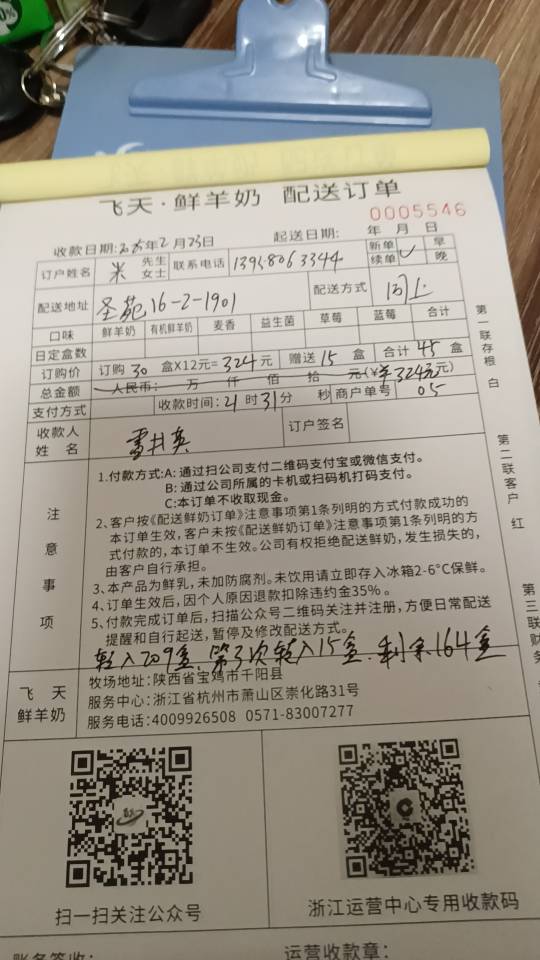 飞天·鲜羊奶 配送订单
0005546
收款日期:2025年2月23日 起送日期: 年 月 日
订户姓名 米 先生 女士 联系电话 13958063344 新单 续单 ✓ 早 晚
配送地址 圣苑16-2-1901 配送方式 同上
口味 鲜羊奶 有机鲜羊奶 麦香 益生菌 草莓 蓝莓 合计
日定盒数
订购价 订购 30 盒X12元=324元 赠送 15 盒 合计 45 盒
总金额 人民币: 万 仟 佰 拾 元(¥ 324元元)
支付方式 收款时间: 21 时 31 分 秒 商户单号 05
收款人姓名 订户签名
注意事项
1.付款方式:A: 通过扫公司支付二维码支付宝或微信支付。
B: 通过公司所属的卡机或扫码机打码支付。
C:本订单不收取现金。
2、客户按《配送鲜奶订单》注意事项第1条列明的方式付款成功的
本订单生效,客户未按《配送鲜奶订单》注意事项第1条列明的方
式付款的,本订单不生效。公司有权拒绝配送鲜奶,发生损失的,
由客户自行承担。
3、本产品为鲜乳,未加防腐剂。未饮用请立即存入冰箱2-6°C保鲜。
4、订单生效后,因个人原因退款扣除违约金35%。
5、付款完成订单后,扫描公众号二维码关注并注册,方便日常配送
提醒和自行起送,暂停及修改配送方式。
转入209盒.第3次转入15盒.剩余164盒
飞天 鲜羊奶
牧场地址:陕西省宝鸡市千阳县
服务中心:浙江省杭州市萧山区崇化路31号
服务电话:4009926508 0571-83007277
扫一扫关注公众号 浙江运营中心专用收款码
账务签收: 运营收款章:
第一联存根 白
第二联客户 红
第三联财务